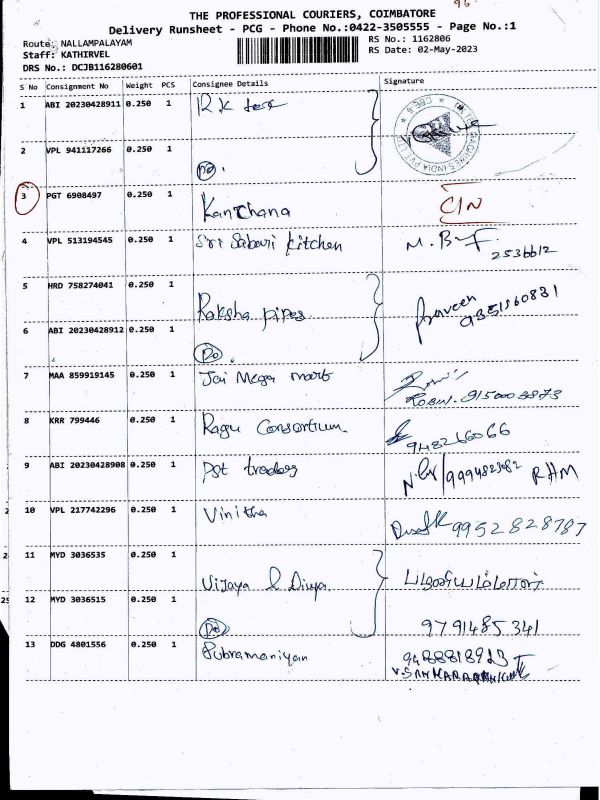 96
THE PROFESSIONAL COURIERS, COIMBATORE
Delivery Runsheet - PCG - Phone No.:0422-3505555 - Page No.:1
Route: NALLAMPALAYAM
RS No.: 1162806
Staff: KATHIRVEL
RS Date: 02-May-2023
DRS No.: DCJB116280601
S No Consignment No Weight PCS Consignee Details Signature
1 ABI 20230428911 0.250 1 R.K tex
2 VPL 941117266 0.250 1 Do.
3 PGT 6908497 0.250 1 Kanchana C/N
4 VPL 513194545 0.250 1 Sri Sabari kitchen M. 2536612
5 HRD 758274041 0.250 1 Raksha pipes Praveen 9351560831
6 ABI 20230428912 0.250 1 Do.
7 MAA 859919145 0.250 1 Jai Mega mart
8 KRR 799446 0.250 1 Ragu Consortium. 948266066
9 ABI 20230428908 0.250 1 Pst traders RHM
10 VPL 217742296 0.250 1 Vinitha 9952828787
11 MYD 3036535 0.250 1 Vijaya & Divya
12 MYD 3036515 0.250 1 Do 9791485341
13 DDG 4801556 0.250 1 Subramaniyan